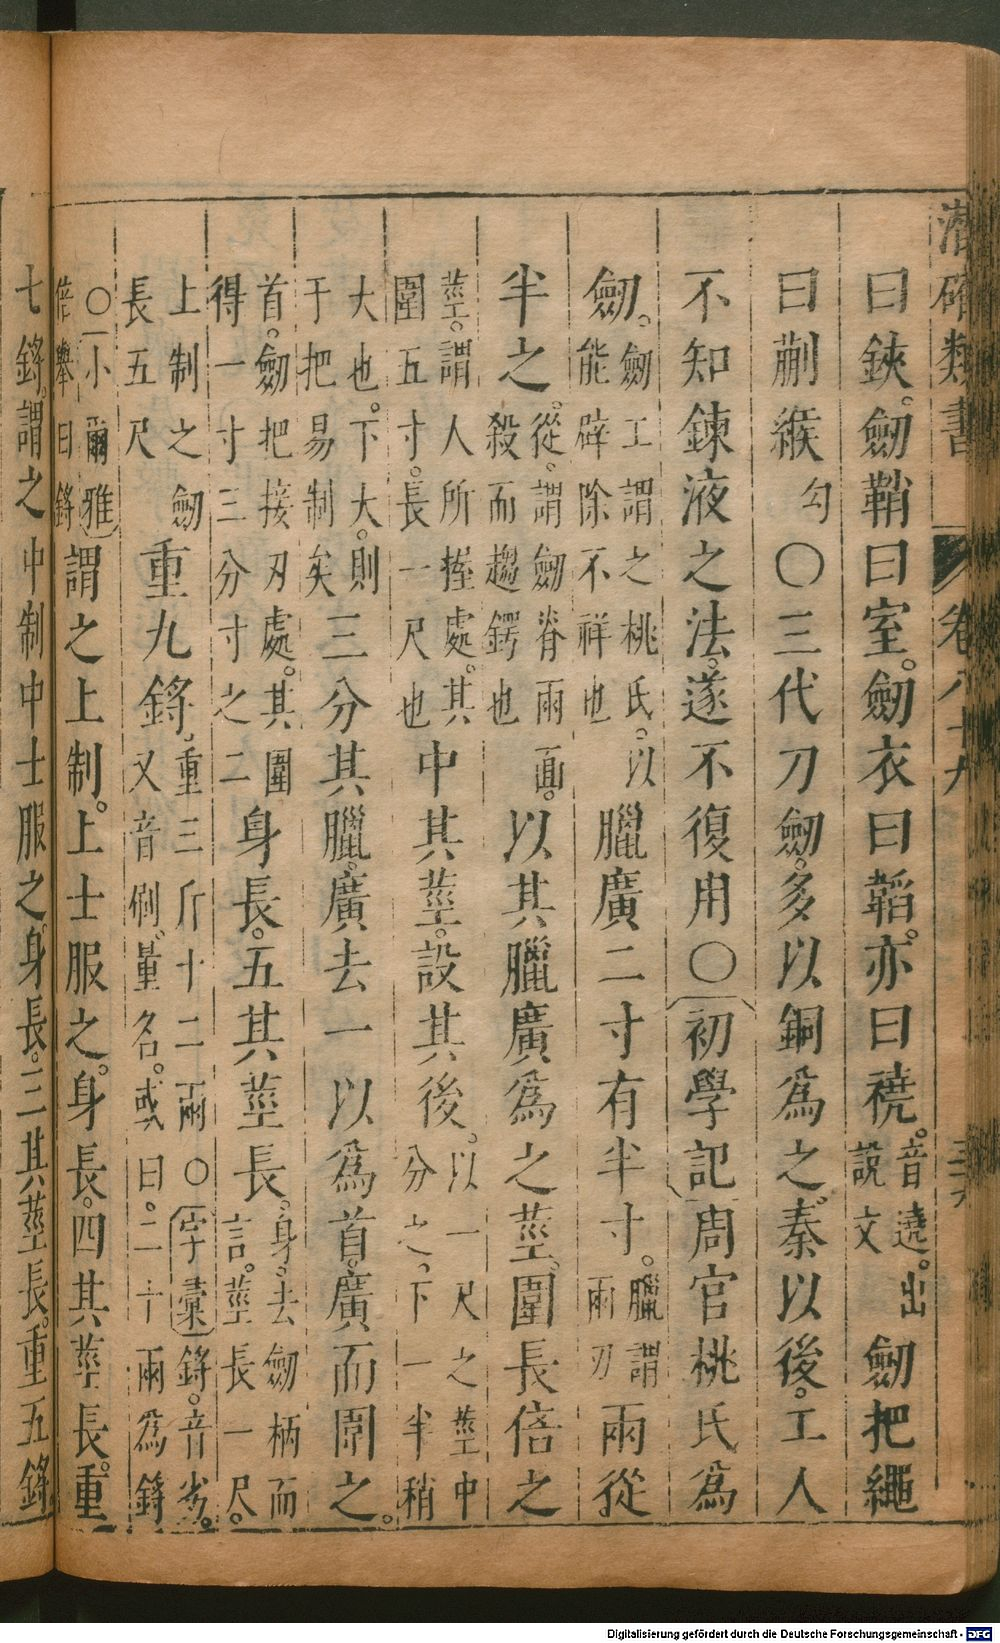 潛確類書 卷八十九
曰鋏。劒鞘曰室。劒衣曰韜。亦曰襓。音遶。出說文劒把繩
曰蒯緱勾〇三代刀劒。多以銅爲之。秦以後。工人
不知鍊液之法。遂不復用〇初學記周官桃氏爲
劒。劒工謂之桃氏。以能辟除不祥也臘廣二寸有半寸。臘謂兩刃兩從
半之。從。謂劒脊兩面。殺而趨鍔也以其臘廣爲之莖圍長倍之
莖。謂人所握處。其圍五寸。長一尺也中其莖。設其後。以一尺之莖中分之。下一半稍
大也。下大。則于把易制矣三分其臘廣去一以爲首。廣而圍之。
首。劒把接刃處。其圍得一寸三分寸之二身長。五其莖長。身。去劒柄而言。莖長一尺。
上制之劒長五尺重九鋝。重三斤十二兩〇字彙鋝。音劣。又音刷。量名。或曰。二十兩爲鋝
〇小爾雅倍舉曰鋝謂之上制。上士服之。身長。四其莖長。重
七鋝。謂之中制中士服之。身長。三其莖長。重五鋝
Digitalisierung gefördert durch die Deutsche Forschungsgemeinschaft - DFG